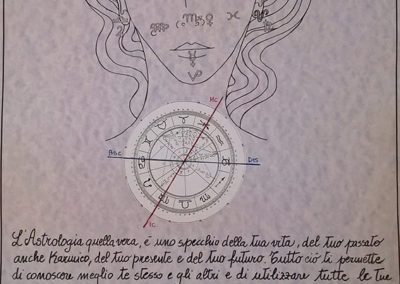 MC
Asc
Dis
IC
L'Astrologia quella vera, è uno specchio della tua vita, del tuo passato
anche Karmico, del tuo presente e del tuo futuro. Tutto ciò ti permette
di conoscere meglio te stesso e gli altri e di utilizzare tutte le tue